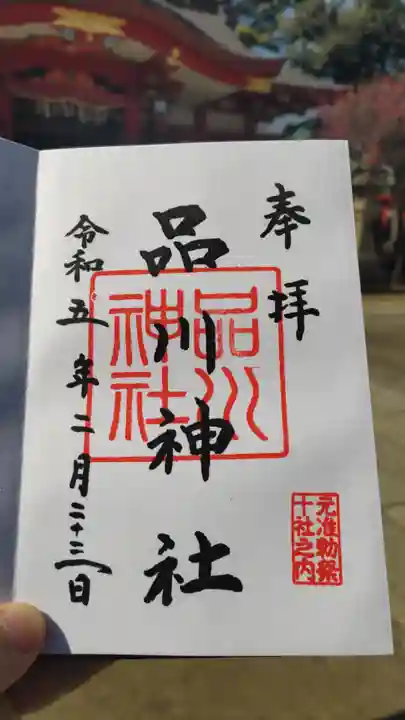 奉拝
品川神社
品川神社
元准勅祭
十社之内
令和五年二月二十三日